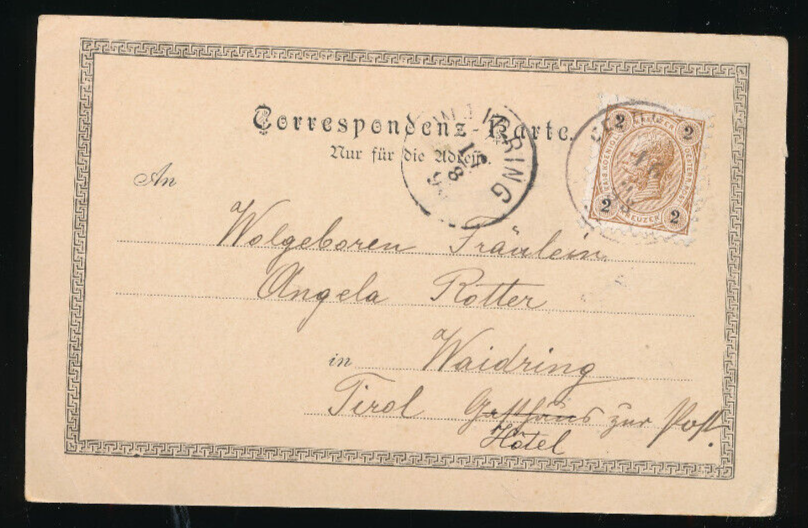 Correspondenz-Karte.
Nur für die Adresse.
An
Wolgeboren Fräulein
Angela Rotter
in Waidring
Tirol Gasthaus zur Post
Hotel
WAIDRING
17
8
2 KREUZER 2
2 KREUZER 2